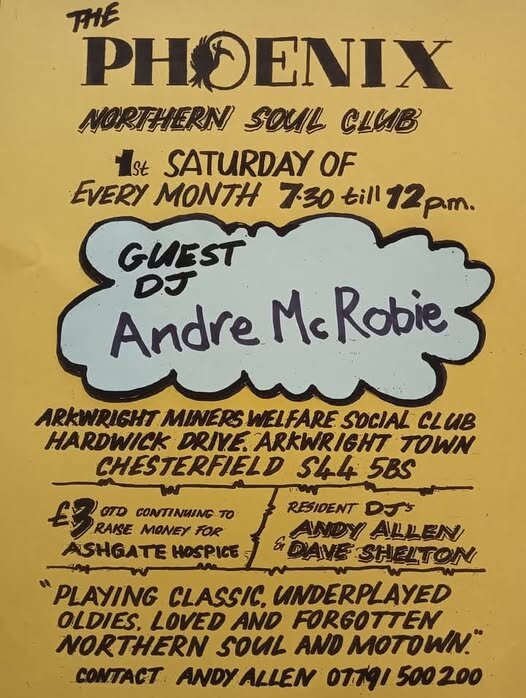 THE
PHOENIX
NORTHERN SOUL CLUB
1st SATURDAY OF
EVERY MONTH 7.30 till 12 p.m.
GUEST
DJ
Andre McRobie
ARKWRIGHT MINERS WELFARE SOCIAL CLUB
HARDWICK DRIVE. ARKWRIGHT TOWN
CHESTERFIELD S44 5BS
£3 OTD CONTINUING TO
RAISE MONEY FOR
ASHGATE HOSPICE
RESIDENT DJ's
ANDY ALLEN
& DAVE SHELTON
"PLAYING CLASSIC, UNDERPLAYED
OLDIES. LOVED AND FORGOTTEN
NORTHERN SOUL AND MOTOWN."
CONTACT ANDY ALLEN 07791 500 200